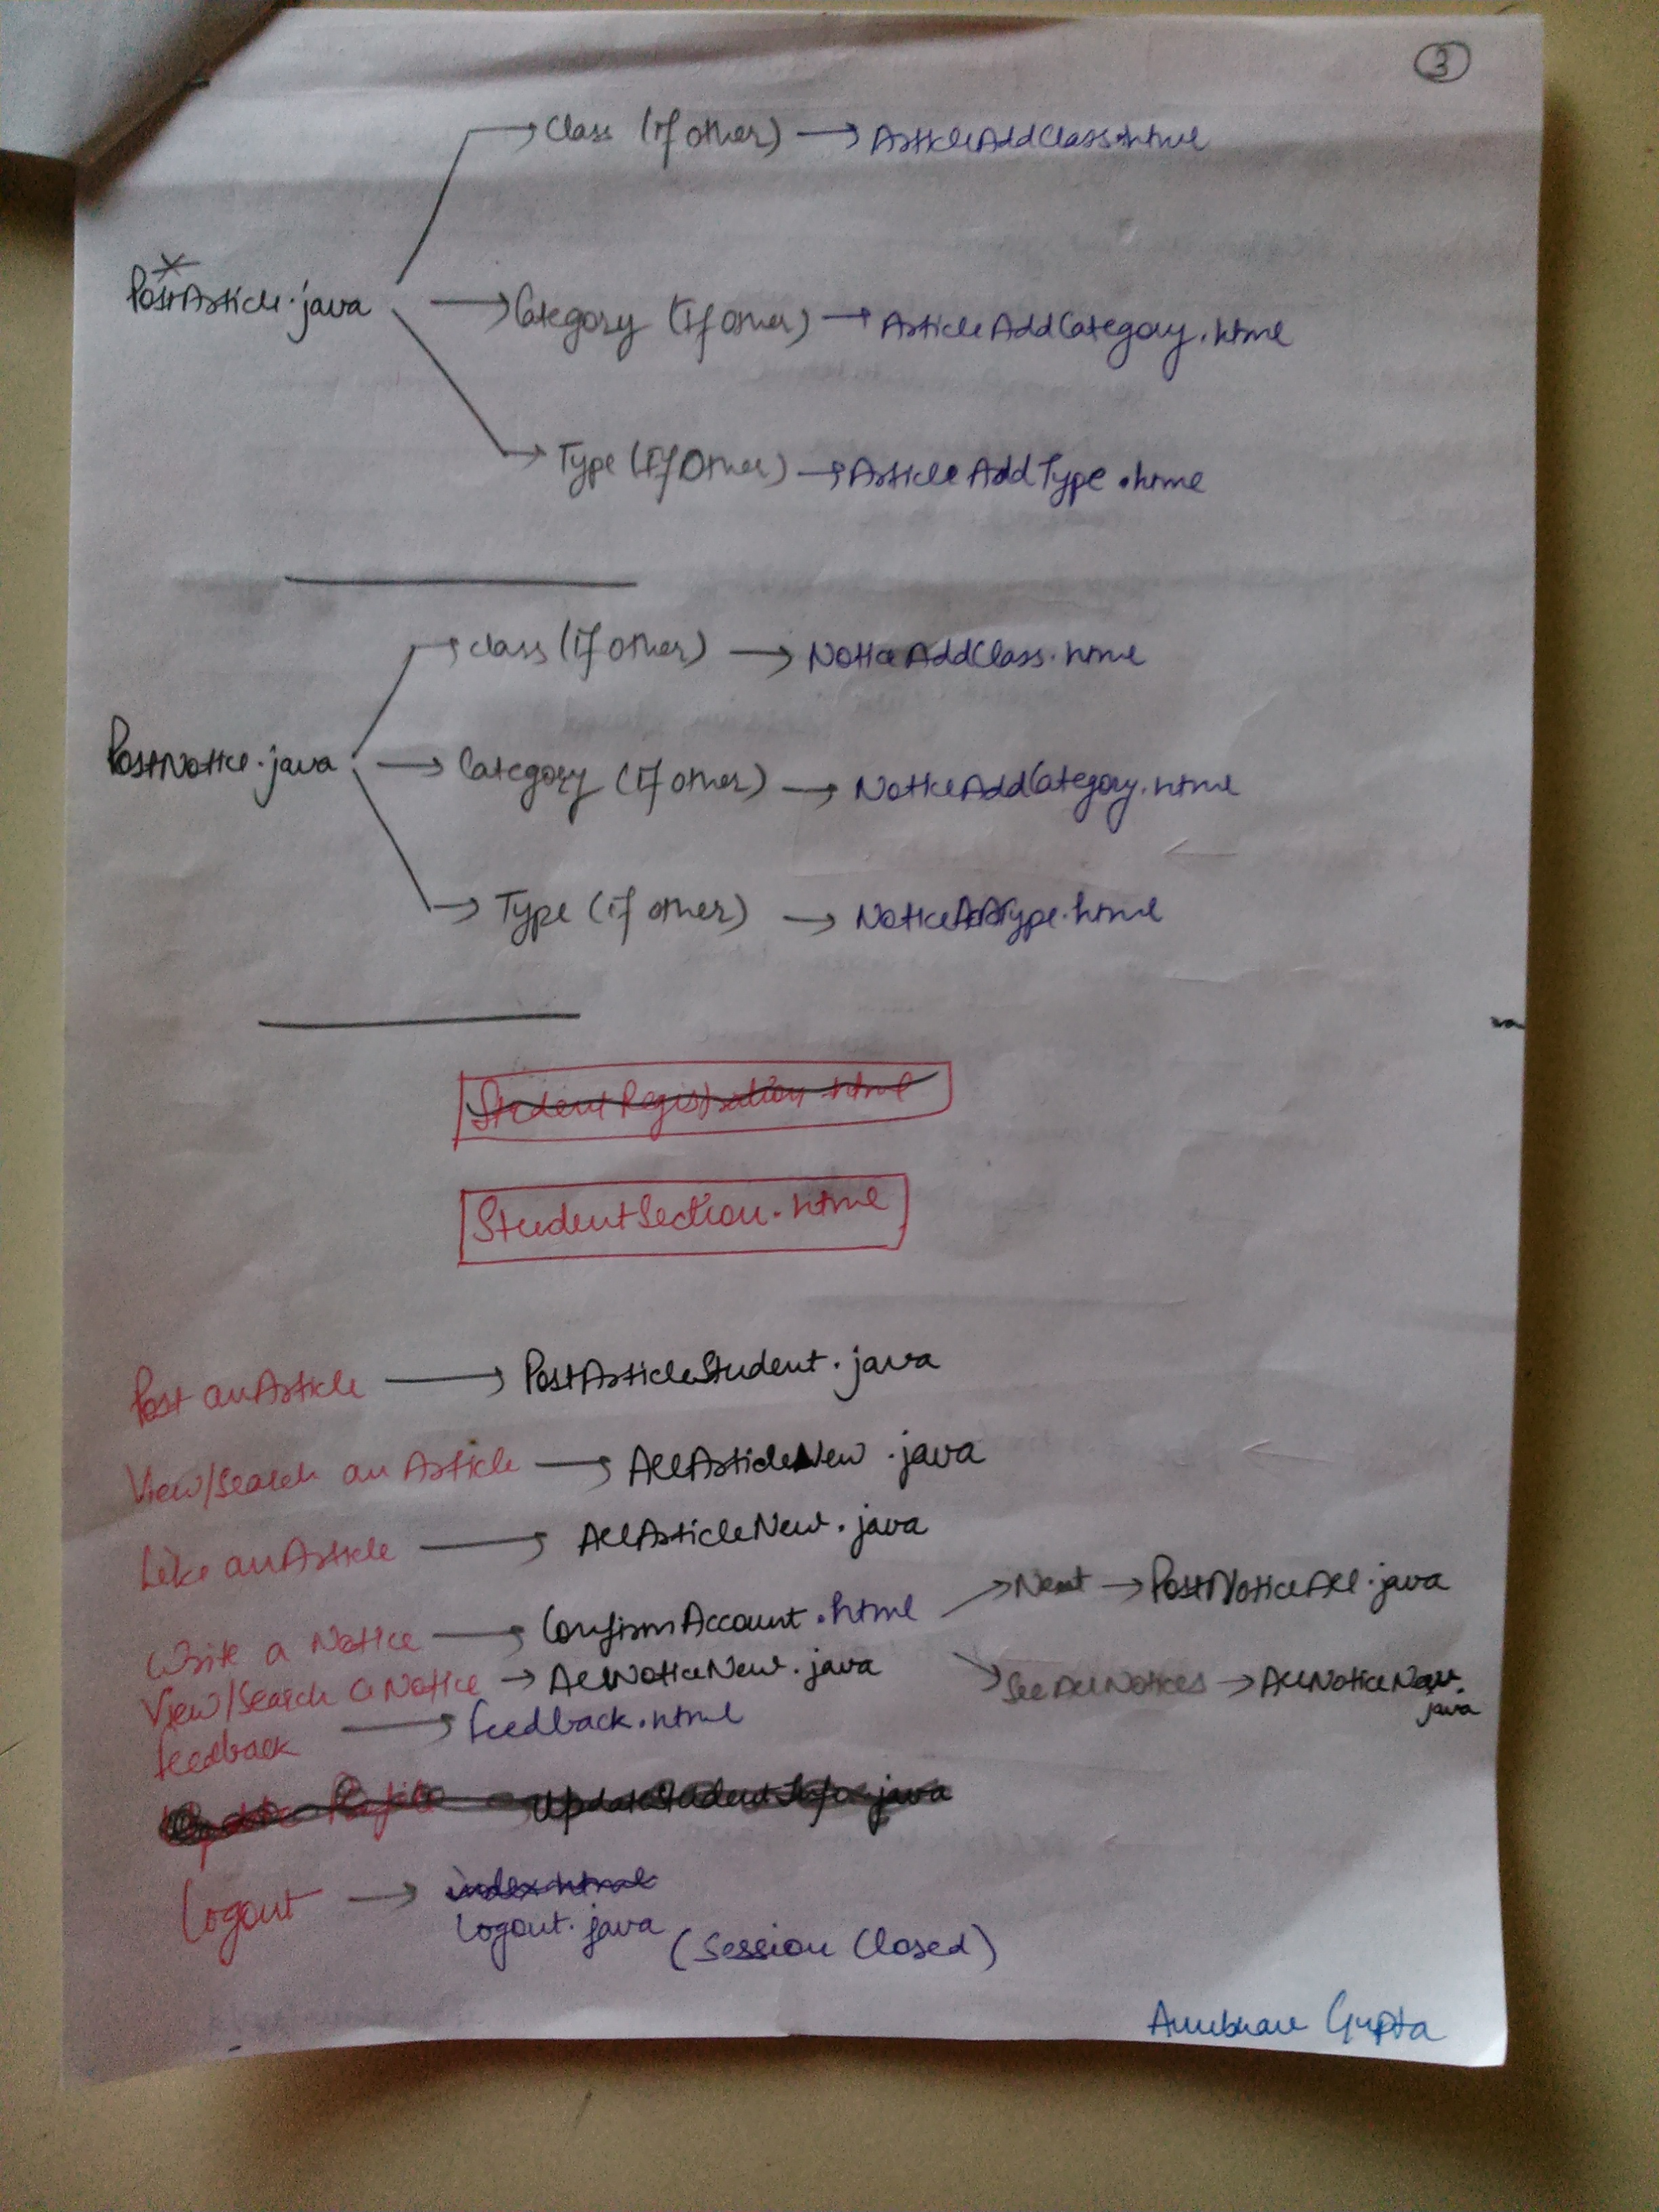 3
Class (if other) → ArticleAddClass.html
PostArticle.java → Category (If Other) → ArticleAddCategory.html
Type (If Other) → ArticleAddType.html
class (if other) → NoticeAddClass.html
PostNotice.java → Category (if other) → NoticeAddCategory.html
Type (if other) → NoticeAddType.html
StudentRegistration.html
StudentSection.html
Post an Article → PostArticleStudent.java
View/Search an Article → AllArticleNew.java
Like an Article → AllArticleNew.java
Write a Notice → ConfirmAccount.html → Next → PostNoticeAll.java
View/Search a Notice → AllNoticeNew.java
See All Notices → AllNoticeNew.
java
feedback → feedback.html
Update Profile → UpdateStudentInfo.java
Logout → index.html
Logout.java (Session Closed)
Anubhav Gupta